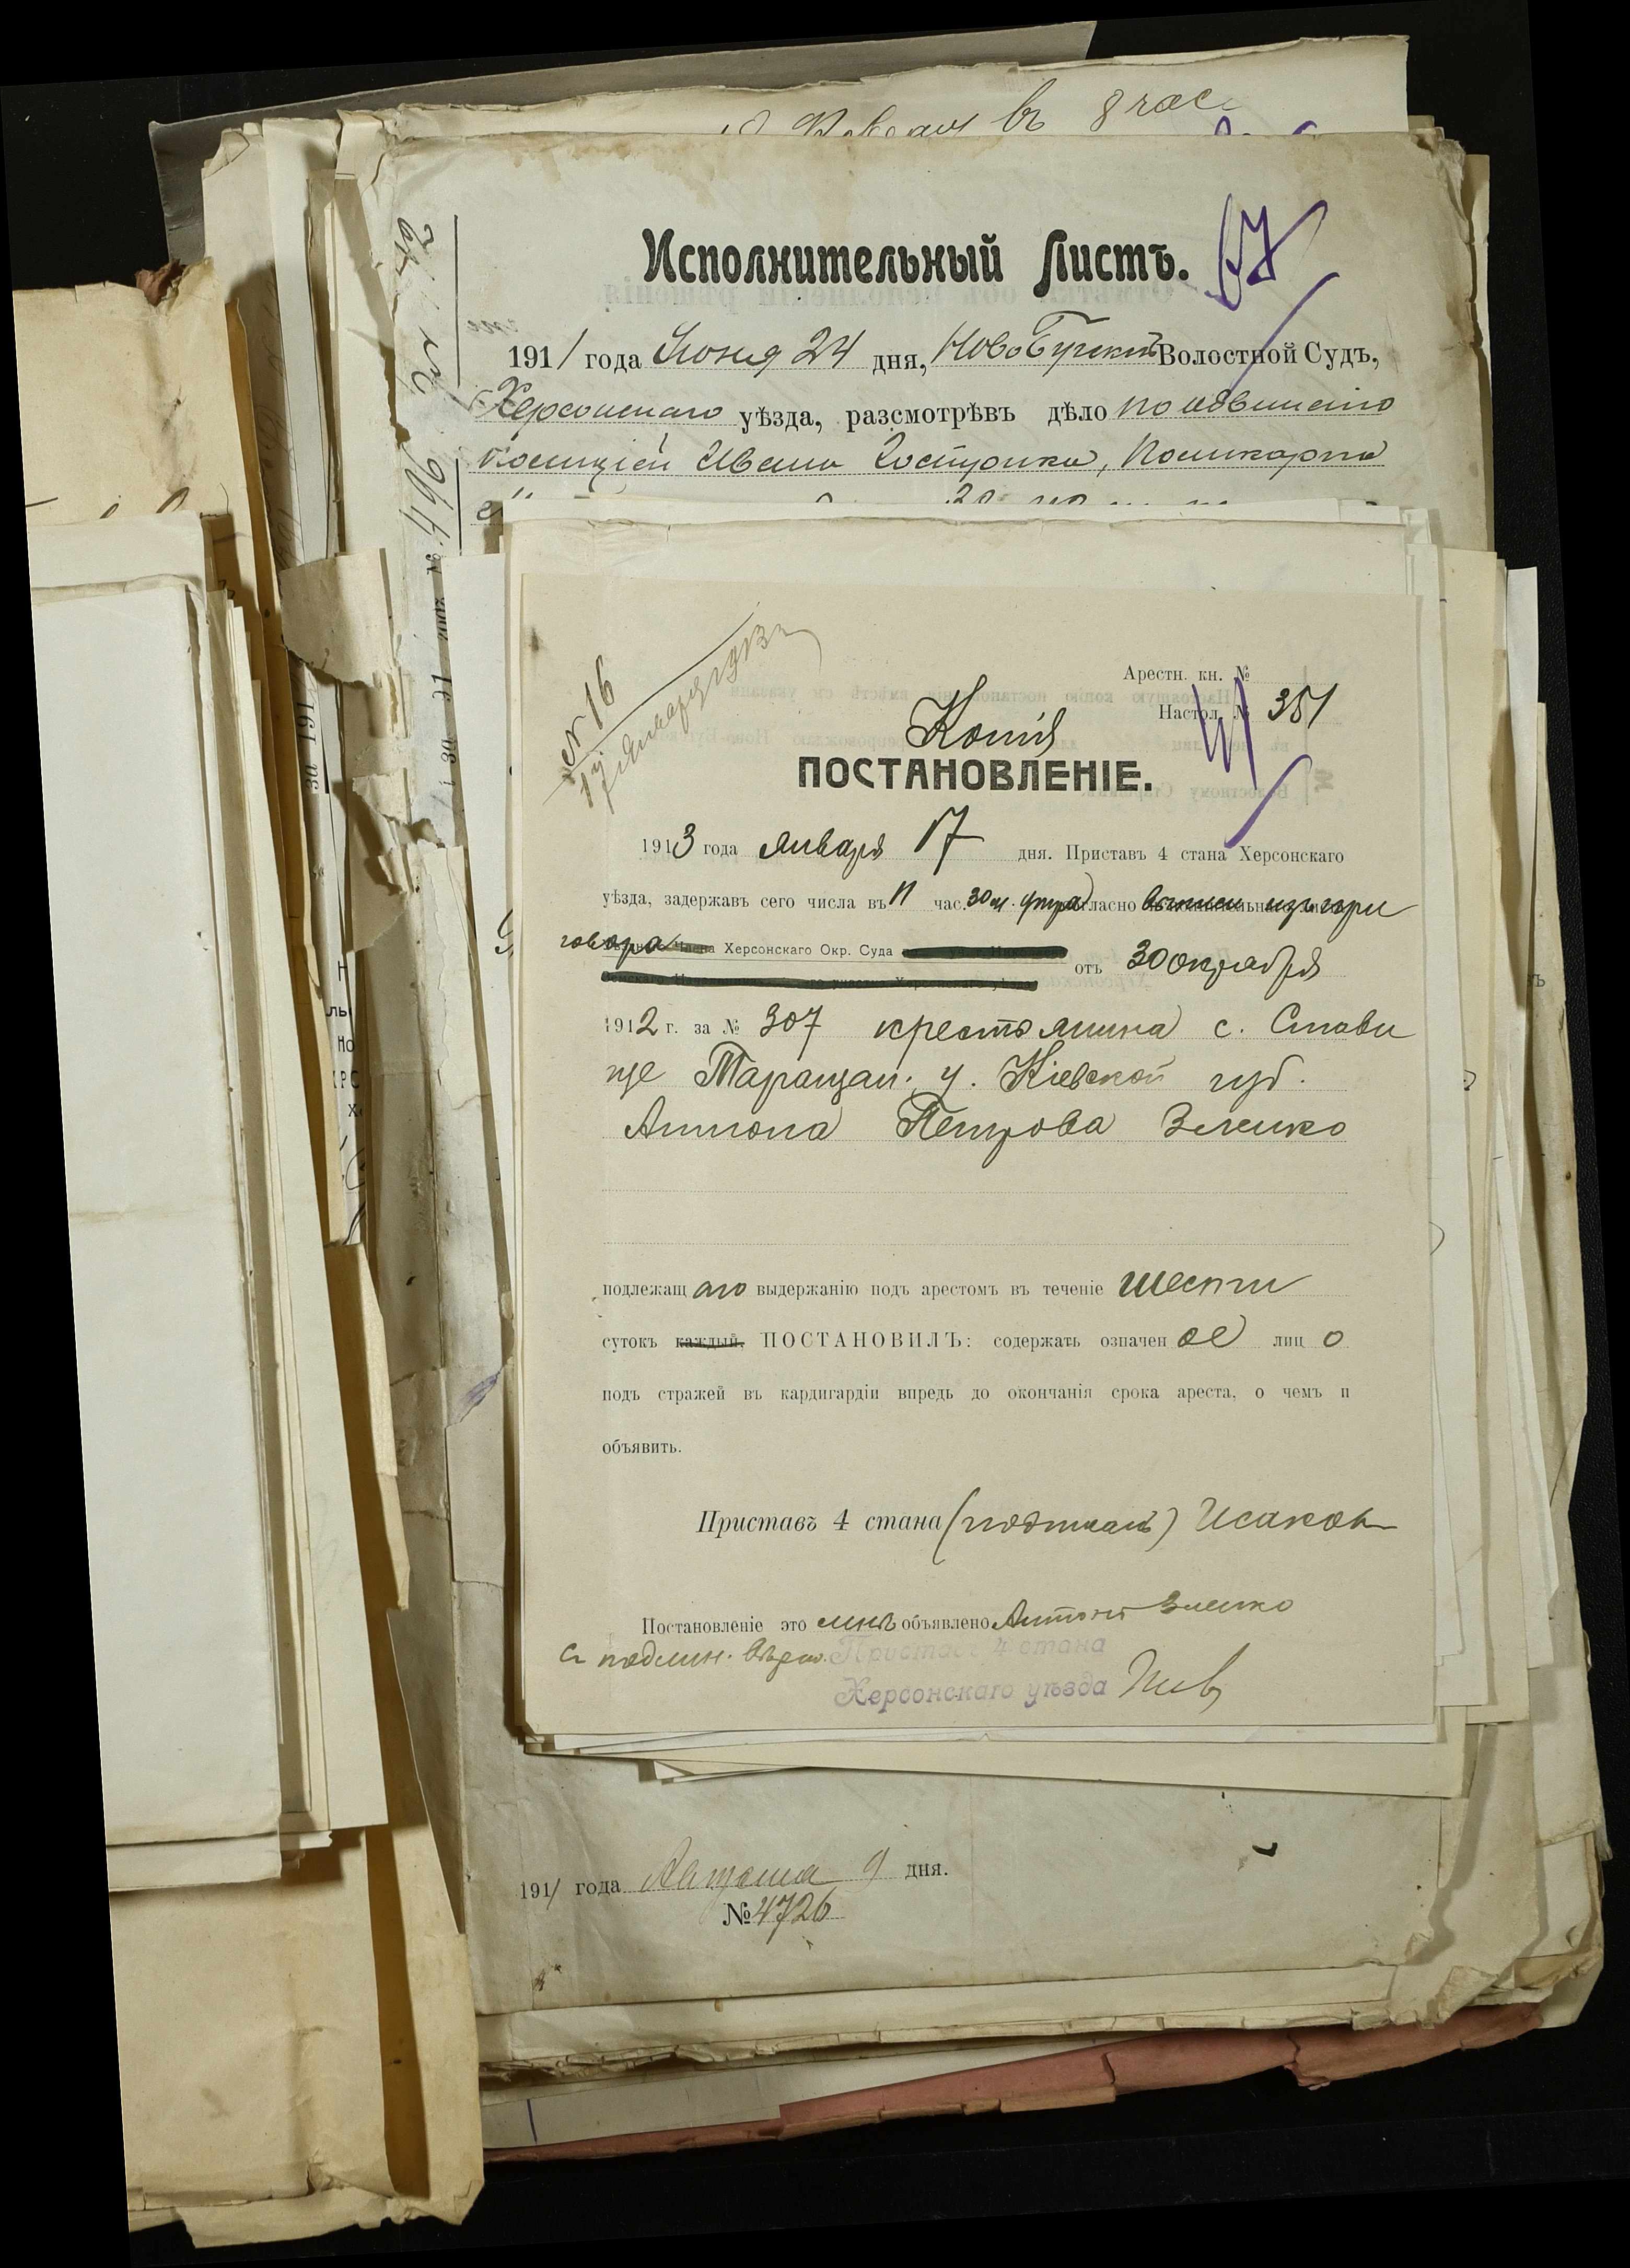 въ 8 час
Исполнительный Листъ.
67
1911 года Іюня 24 дня, Ново Бугскій Волостной Судъ,
Херсонскаго уѣзда, разсмотрѣвъ дѣло по обвиненію
полиціей Ивана Костурика, Поликарпа
№ 496
N 16
17 Января 1913 г
Арестн. кн. №
Настол. № 351
41
Копія
ПОСТАНОВЛЕНІЕ.
1913 года Января 17 дня. Приставъ 4 стана Херсонскаго
уѣзда, задержавъ сего числа въ 11 час. 30 м. утра согласно выписи изъ при
говора Херсонскаго Окр. Суда
отъ 30 октября
1912 г. за № 307 крестьянина с. Стави
ще Таращан. у. Кіевской губ.
Антона Петрова Зленко
подлежащаго выдержанію подъ арестомъ въ теченіе шести
сутокъ каждый, ПОСТАНОВИЛЪ: содержать означенное лицо
подъ стражей въ кардигардіи впредь до окончанія срока ареста, о чемъ и
объявить.
Приставъ 4 стана (подписалъ) Исаков
Постановленіе это мнѣ объявлено Антонъ Зленко
Съ подлин. вѣрно.
Приставъ 4 стана
Херсонскаго уѣзда
1911 года Августа 9 дня.
№ 4726